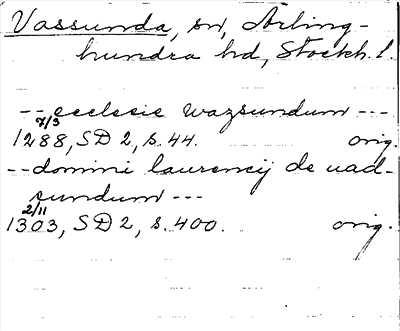 Vassunda, sn, Ärling-
hundra hd, Stockh. l.
-- ecclesie wazsundum ---
7/3
1288, SD 2, s. 44. orig.
-- domini laurencij de uad-
sundum ---
2/11
1303, SD 2, s. 400. orig.